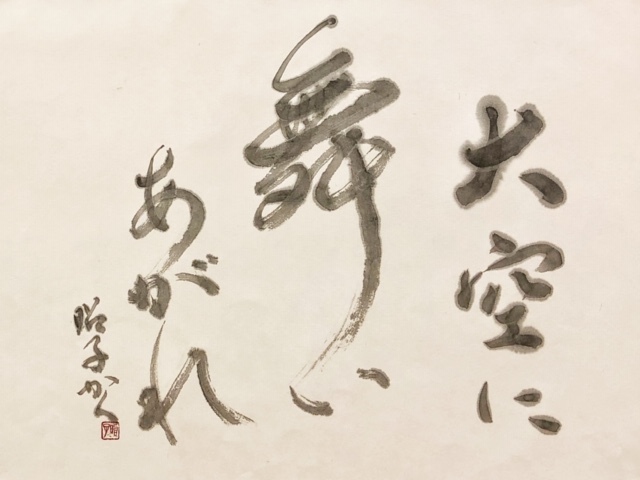 大空に
舞い
あがれ
昭子かく